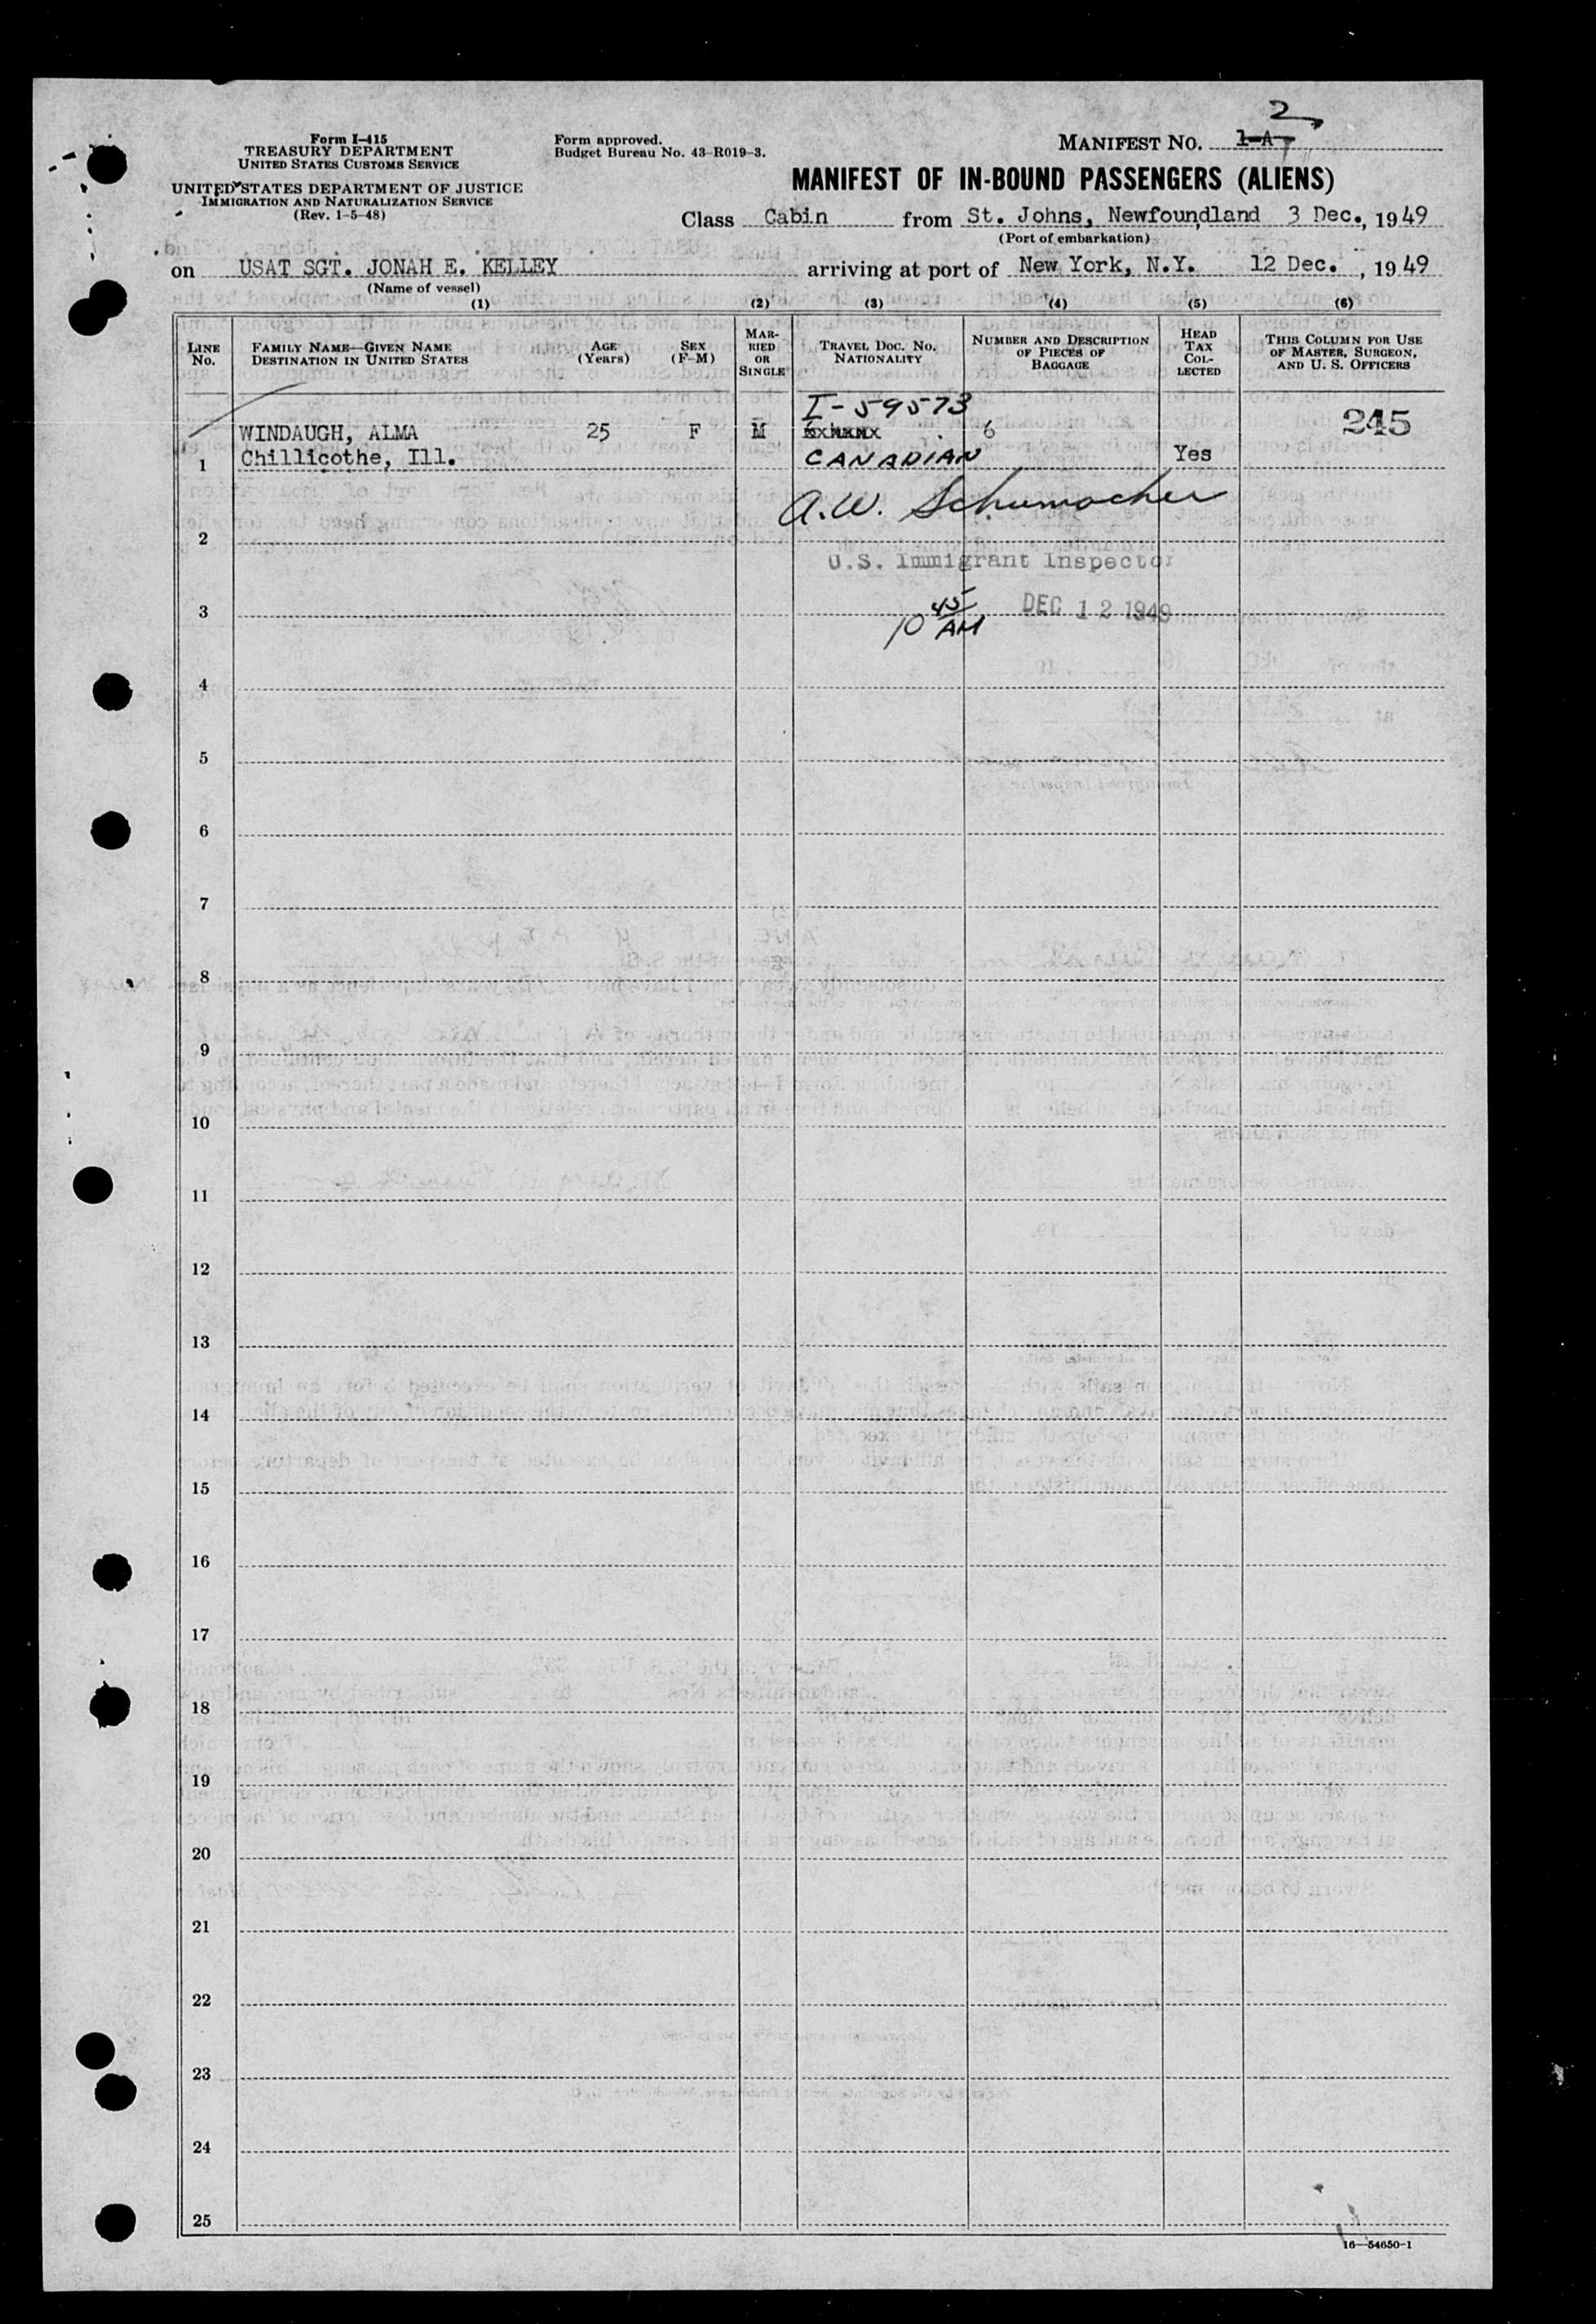 Form I-415
TREASURY DEPARTMENT
UNITED STATES CUSTOMS SERVICE
UNITED STATES DEPARTMENT OF JUSTICE
IMMIGRATION AND NATURALIZATION SERVICE
(Rev. 1-5-48)
Form approved.
Budget Bureau No. 43-R019-3.
2
MANIFEST NO. 1-A
MANIFEST OF IN-BOUND PASSENGERS (ALIENS)
Class Cabin from St. Johns, Newfoundland 3 Dec., 1949
(Port of embarkation)
on USAT SGT. JONAH E. KELLEY arriving at port of New York, N.Y. 12 Dec., 1949
(Name of vessel)
(1) (2) (3) (4) (5) (6)
LINE No.
FAMILY NAME—GIVEN NAME
DESTINATION IN UNITED STATES
AGE (Years)
SEX (F-M)
MARRIED OR SINGLE
TRAVEL DOC. NO.
NATIONALITY
NUMBER AND DESCRIPTION OF PIECES OF BAGGAGE
HEAD TAX COLLECTED
THIS COLUMN FOR USE OF MASTER, SURGEON, AND U. S. OFFICERS
I-59573
WINDAUGH, ALMA 25 F M 6 245
1 Chillicothe, Ill. CANADIAN Yes
A.W. Schumacher
2
U.S. Immigrant Inspector
3 10 45 AM DEC 12 1949
4
5
6
7
8
9
10
11
12
13
14
15
16
17
18
19
20
21
22
23
24
25
16—54650-1